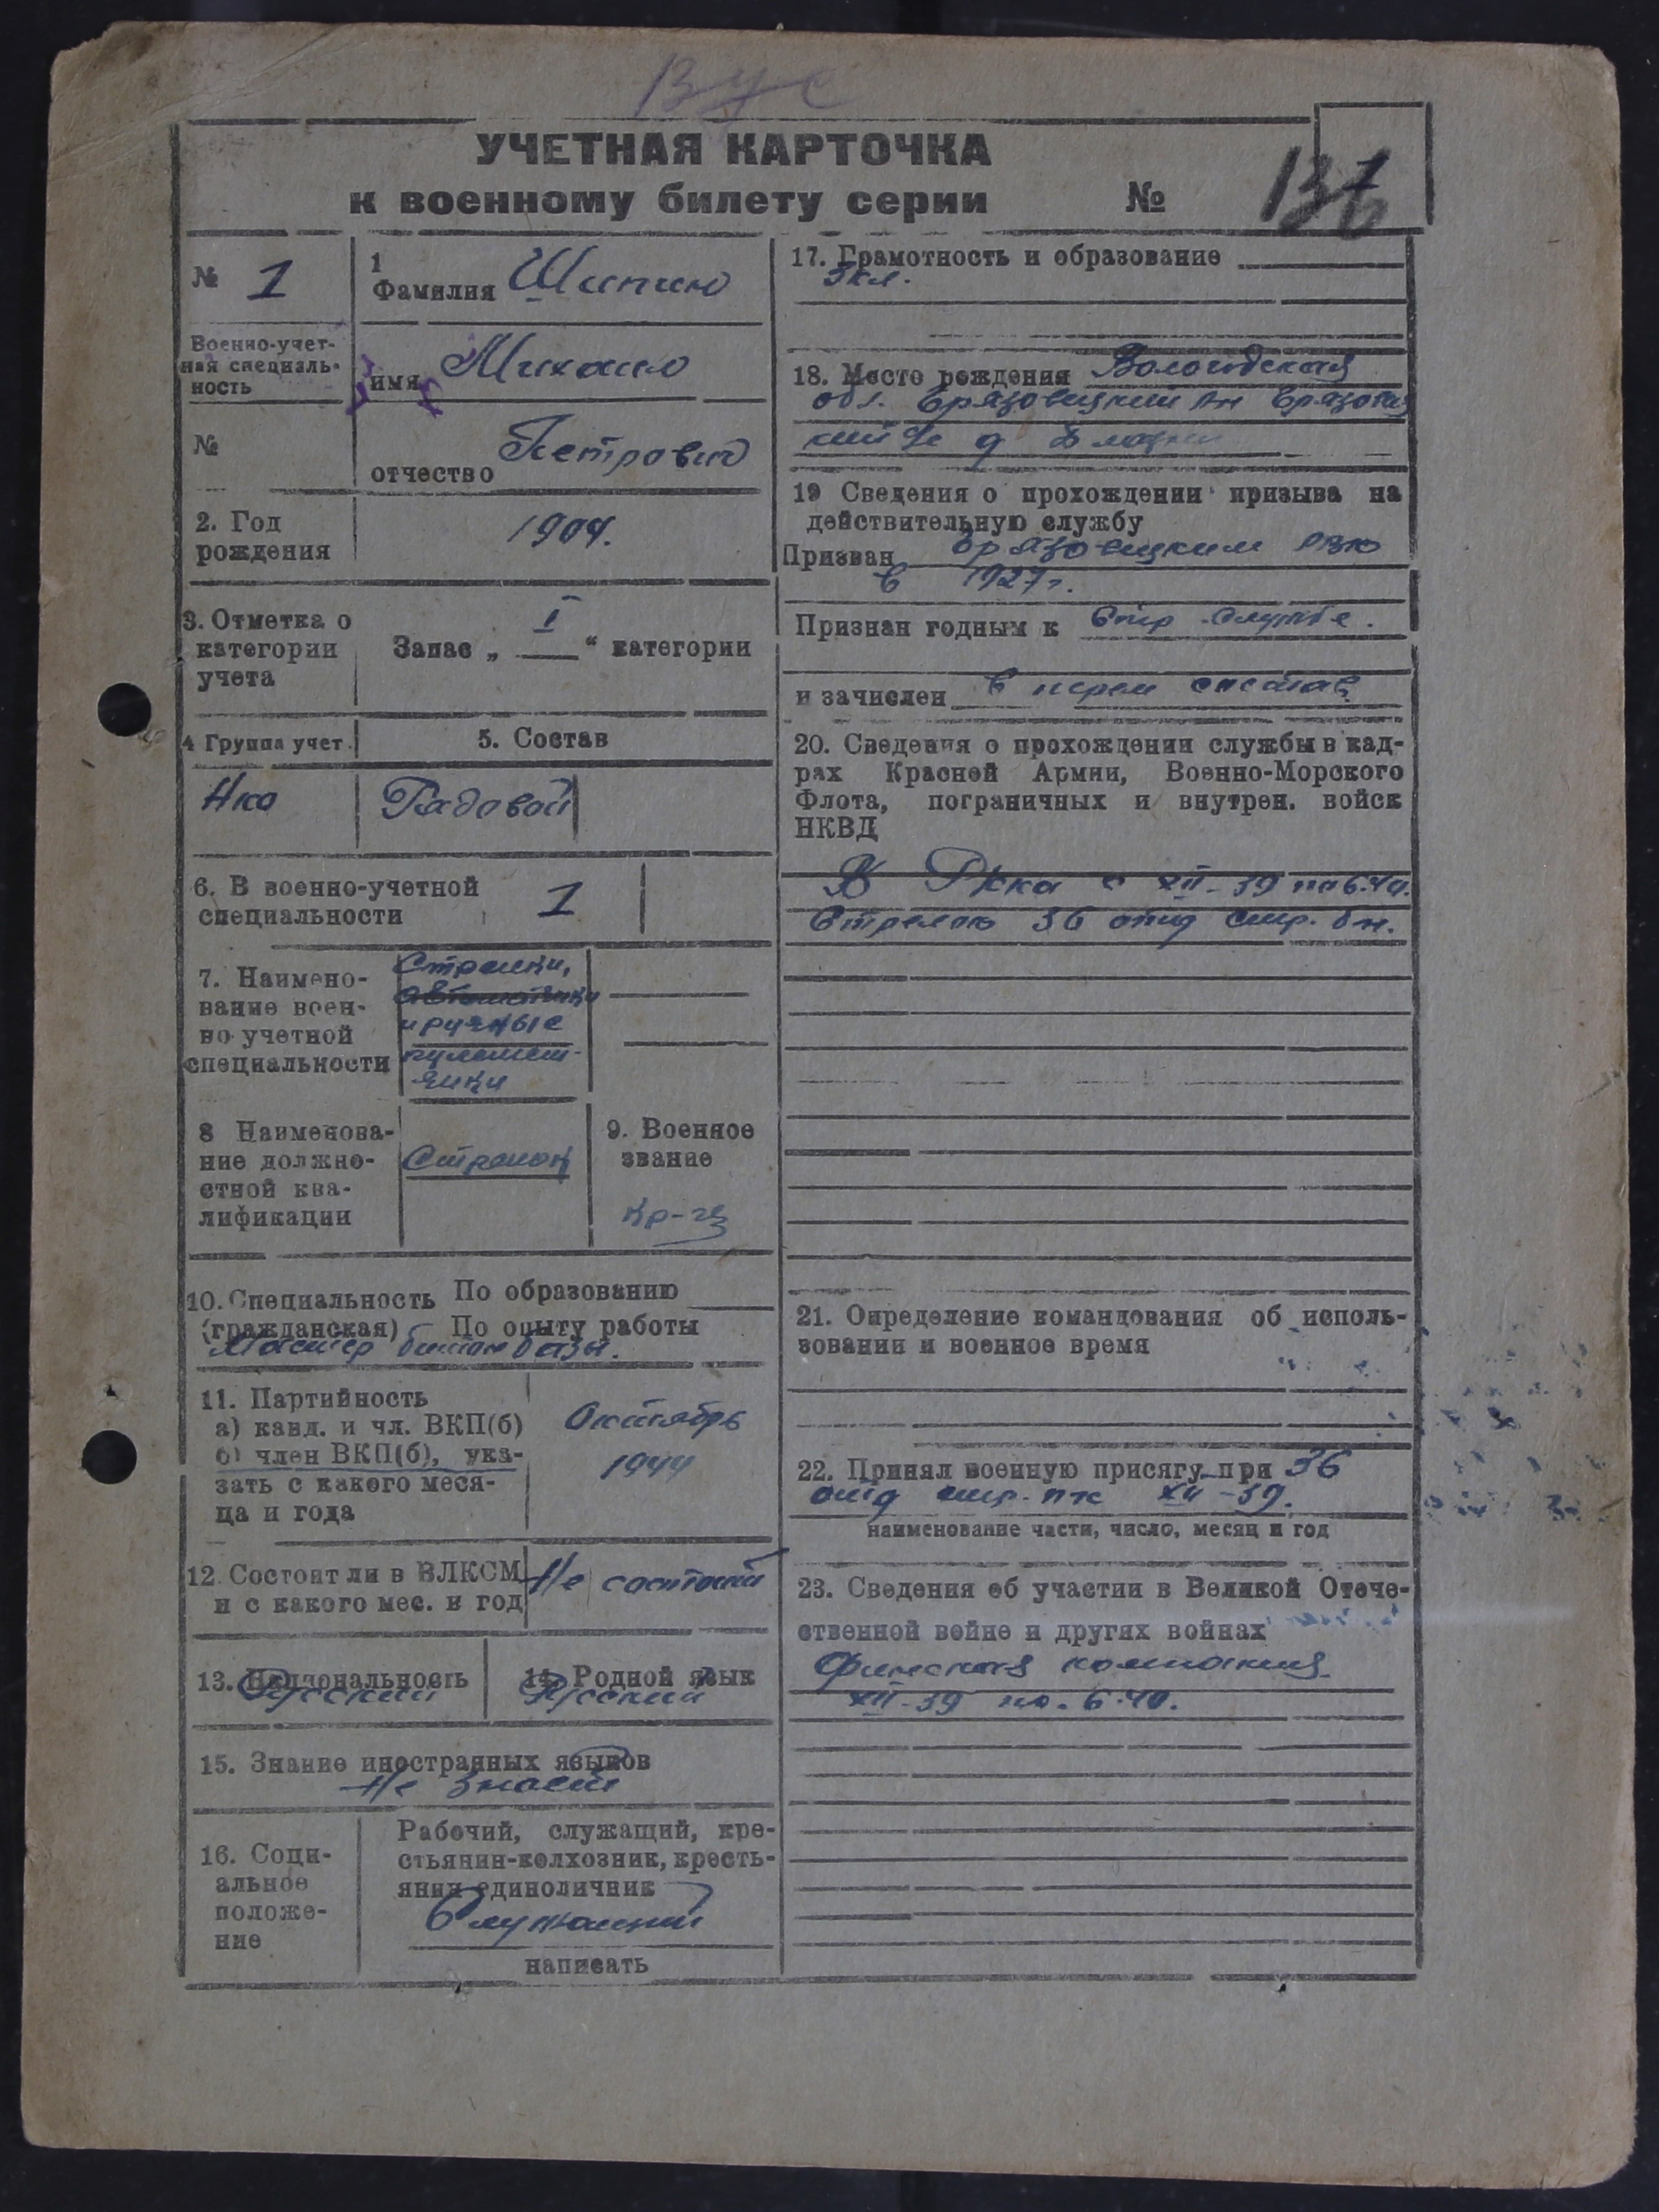 Вус
УЧЕТНАЯ КАРТОЧКА
к военному билету серии №
№ 1
1
Фамилия Шипин
Военно-учет-
ная специаль-
ность
имя Михаил
№
отчество Петрович
2. Год
рождения
1904.
3. Отметка о
категории
учета
Запас „ I “ категории
4 Группа учет.
5. Состав
Нка
Рядовой
6. В военно-учетной
специальности
1
7. Наимено-
вание воен-
но учетной
специальности
Стрелки,
автоматчики
и ручные
пулемет-
чики
8 Наименова-
ние должно-
стной ква-
лификации
Стрелок
9. Военное
звание
Кр-ец
10. Специальность По образованию
(гражданская) По опыту работы
Мастер
11. Партийность
а) канд. и чл. ВКП(б)
б) член ВКП(б), ука-
зать с какого меся-
ца и года
Октябрь
1944
12. Состоит ли в ВЛКСМ
и с какого мес. и год
Не состоит
13. Национальность
Русский
14. Родной язык
Русский
15. Знание иностранных языков
Не знает
16. Соци-
альное
положе-
ние
Рабочий, служащий, кре-
стьянин-колхозник, кресть-
янин единоличник
Служащий
написать
17. Грамотность и образование
3 кл.
18. Место рождения Вологодская
обл. Грязовецкий рн Грязовец
кий д
19 Сведения о прохождении призыва на
действительную службу
Призван Грязовецким РВК
в 1927 г.
Признан годным к стр службе.
и зачислен в перем состав
20. Сведения о прохождении службы в кад-
рах Красной Армии, Военно-Морского
Флота, пограничных и внутрен. войск
НКВД
В Ркка с XII-39 по 6.40.
Стрелок 36 отд стр. бн.
21. Определение командования об исполь-
зовании и военное время
22. Принял военную присягу при 36
отд стр. пк XII-39.
наименование части, число, месяц и год
23. Сведения об участии в Великой Отече-
ственной войне и других войнах
Финская компания
XII-39 по. 6.40.